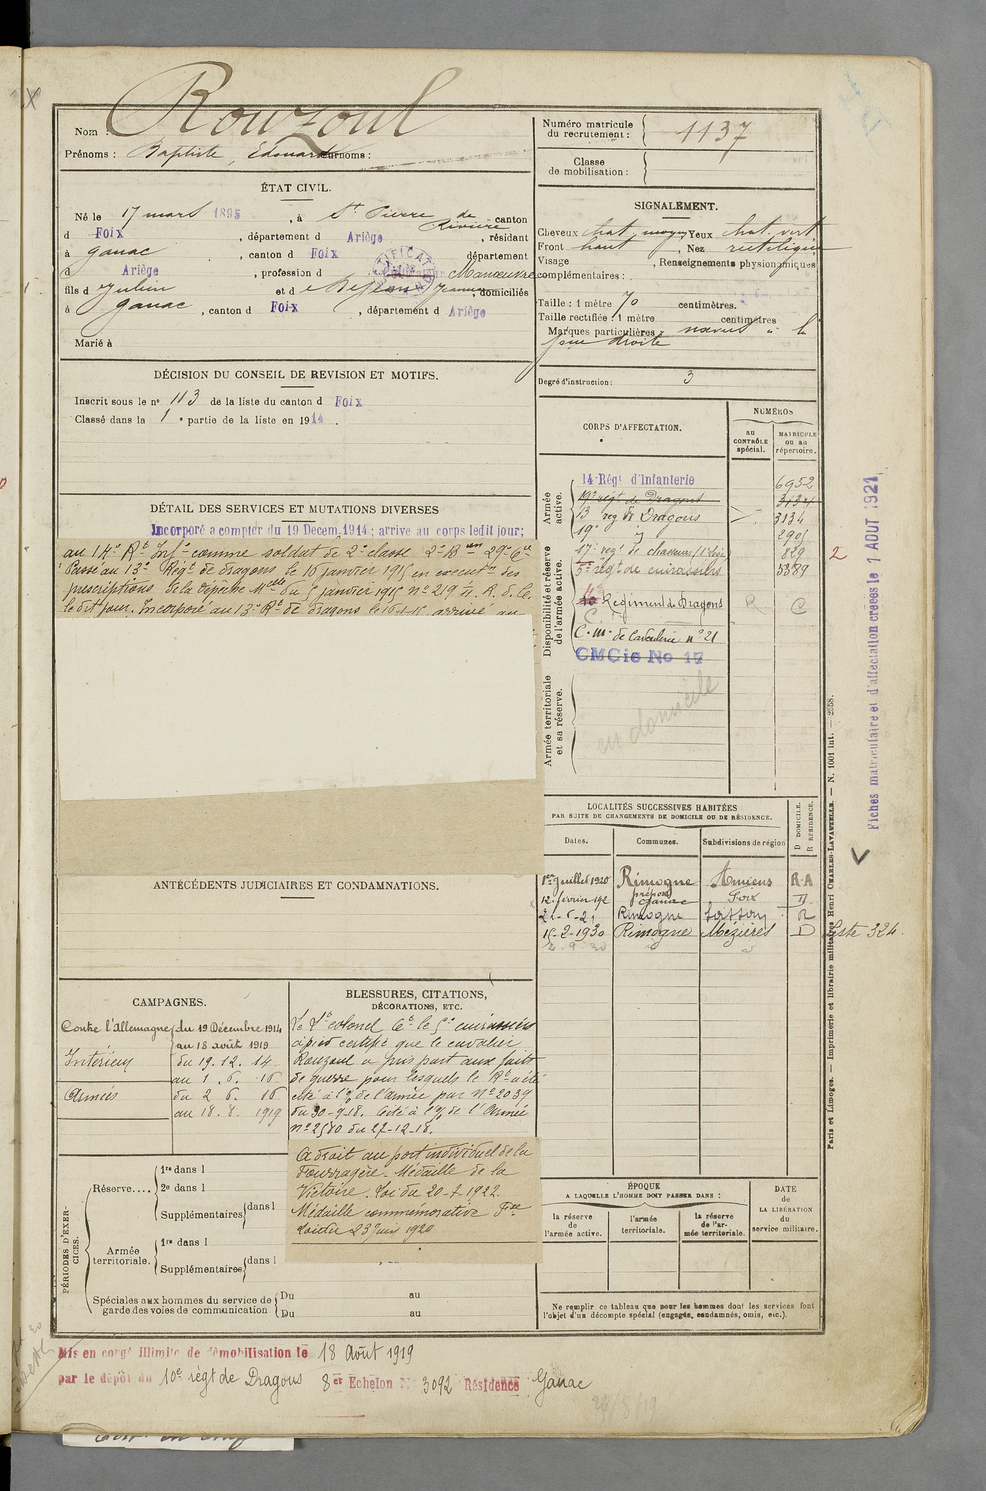 Nom : Rouzoul
Prénoms : Baptiste, Edouard Surnoms :
Numéro matricule du recrutement : 1137
Classe de mobilisation :
ÉTAT CIVIL.
Né le 17 mars 1895, à St Pierre de Rivière canton
d Foix, département d Ariège, résidant
à Ganac, canton d Foix département
d Ariège, profession d Manœuvre
fils d Julien et d Jeanne, domiciliés
à Ganac, canton d Foix, département d Ariège
Marié à
SIGNALEMENT.
Cheveux chat. moyen Yeux chat. vert
Front haut, Nez rectiligne
Visage , Renseignements physionomiques
complémentaires :
Taille : 1 mètre 70 centimètres.
Taille rectifiée : 1 mètre centimètres
Marques particulières : nævus à la
joue droite
Degré d'instruction : 3
DÉCISION DU CONSEIL DE REVISION ET MOTIFS.
Inscrit sous le no 113 de la liste du canton d Foix
Classé dans la 1e partie de la liste en 1914.
DÉTAIL DES SERVICES ET MUTATIONS DIVERSES
Incorporé a compter du 19 Decem. 1914 ; arrive au corps ledit jour ;
au 14e Rt Infie comme soldat de 2e classe 2e Bon 29e Cie
Passé au 13e Régt de dragons le 16 janvier 1915 en executon des
prescriptions de la dépêche Mlle du 5 janvier 1915 no 219
le dit jour. Incorporé au 13e Rt de dragons le 16-1-15 arrivé au
CORPS D'AFFECTATION.
NUMÉROS
au CONTRÔLE spécial.
MATRICULE ou au répertoire.
Armée active.
14 Régt d'Infanterie 6952
19e régt de Dragons 3134
13e reg de Dragons 3134
19e 2901
Disponibilité et réserve de l'armée active.
17e regt de chasseurs 829
5e régt de cuirassiers 5389
Régiment de Dragons R C
C. m. de Cavalerie no 21
CMCie No 17
Armée territoriale et sa réserve.
en domicile
Fiches matriculaire et d'affectation créées le 1 AOUT 1921
2
LOCALITÉS SUCCESSIVES HABITÉES
PAR SUITE DE CHANGEMENTS DE DOMICILE OU DE RÉSIDENCE.
Dates. Communes. Subdivisions de région D DOMICILE. R RÉSIDENCE.
1er Juillet 1920 Rimogne Amiens R.A
12 février 192 Ganac Foix D
21-6-21 Rimogne R
15-2-1930 Rimogne Mézières D Liste 324.
ANTÉCÉDENTS JUDICIAIRES ET CONDAMNATIONS.
CAMPAGNES.
Contre l'Allemagne du 19 Décembre 1914
au 18 août 1919
Intérieur du 19.12.14
au 1.6.16
Armées du 2.6.16
au 18.8.1919
BLESSURES, CITATIONS,
DÉCORATIONS, ETC.
Le Lt colonel Ct le 5e cuirassiers
à pied certifie que le cavalier
Rouzoul a pris part aux faits
de guerre pour lesquels le Rt a été
cité à l'o/ de l'armée par no 2039
du 30-9-18. Cité à l'o/ de l'Armée
no 2580 du 27-12-18.
A droit au port individuel de la
Fourragère. Médaille de la
Victoire. Loi du 20-7-1922.
Médaille commemorative Fse
Loi du 23 Juin 1920
PÉRIODES D'EXERCICES.
Réserve.... 1re dans l
2e dans l
Supplémentaires dans l
Armée territoriale. 1re dans l
Supplémentaires dans l
Spéciales aux hommes du service de
garde des voies de communication
Du au
Du au
ÉPOQUE
A LAQUELLE L'HOMME DOIT PASSER DANS :
la réserve de l'armée active.
l'armée territoriale.
la réserve de l'armée territoriale.
DATE de LA LIBÉRATION du service militaire.
Ne remplir ce tableau que pour les hommes dont les services font
l'objet d'un décompte spécial (engagés, condamnés, omis, etc.).
Paris et Limoges. — Imprimerie et librairie militaires Henri CHARLES-LAVAUZELLE. — N. 1001 int. — 2558.
Mis en congé illimité de démobilisation le 18 Août 1919
par le dépôt du 10e régt de Dragons 8er Echelon No 3092 Résidence Ganac